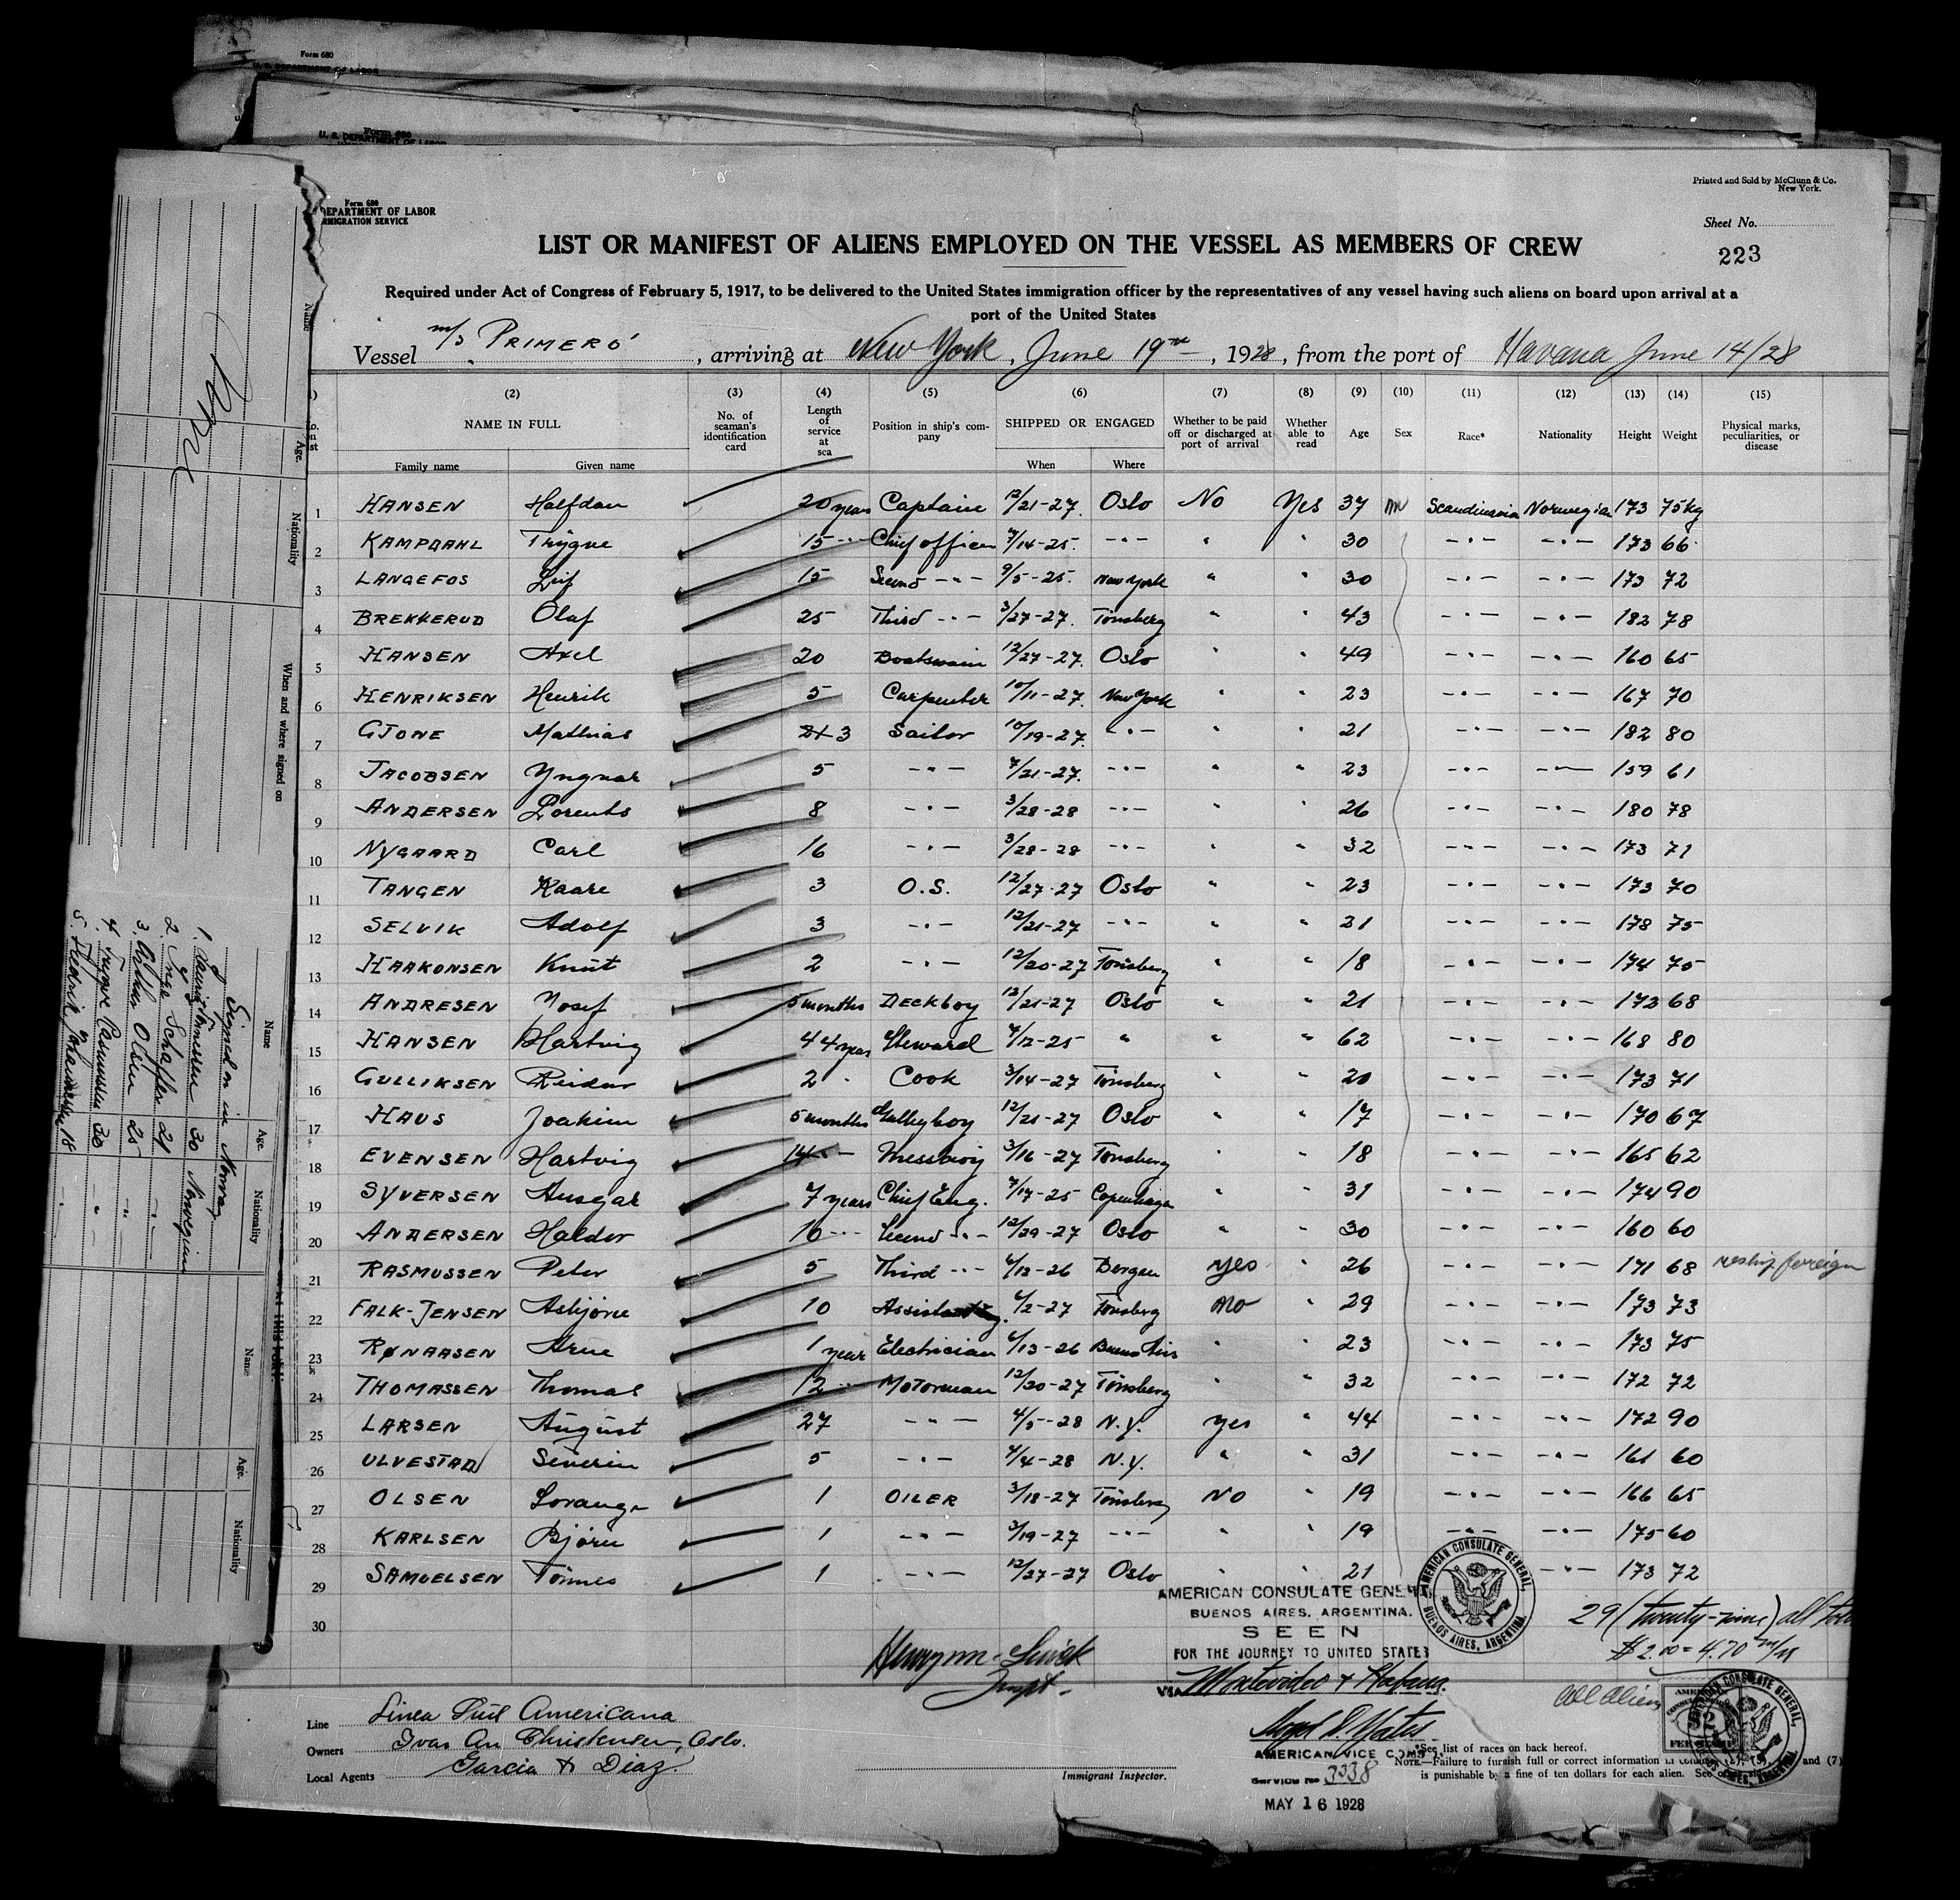 Form 680
U. S. DEPARTMENT OF LABOR
Form 680
U. S. DEPARTMENT OF LABOR
Printed and Sold by McClunn & Co.
New York.
Form 680
DEPARTMENT OF LABOR
IMMIGRATION SERVICE
Sheet No.
223
LIST OR MANIFEST OF ALIENS EMPLOYED ON THE VESSEL AS MEMBERS OF CREW
Required under Act of Congress of February 5, 1917, to be delivered to the United States immigration officer by the representatives of any vessel having such aliens on board upon arrival at a
port of the United States
Vessel m/s PRIMERO, arriving at New York, June 19th, 1928, from the port of Havana June 14/28
(2) (3) (4) (5) (6) (7) (8) (9) (10) (11) (12) (13) (14) (15)
NAME IN FULL No. of seaman's identification card Length of service at sea Position in ship's company SHIPPED OR ENGAGED Whether to be paid off or discharged at port of arrival Whether able to read Age Sex Race* Nationality Height Weight Physical marks, peculiarities, or disease
Family name Given name When Where
1 HANSEN Halfdan 20 years Captain 12/21-27. Oslo No Yes 37 m Scandinavian Norwegian 173 75kg
2 KAMPDAHL Trygve 15 -"- Chief officer 7/14-25. -"- " " 30 -"- -"- 173 66
3 LANGEFOS Leif 15 Second -"- 9/5-25. New York " " 30 -"- -"- 173 72
4 BREKKERUD Olaf 25 Third -"- 3/27-27. Tönsberg " " 43 -"- -"- 182 78
5 HANSEN Axel 20 Boatswain 12/27-27. Oslo " " 49 -"- -"- 160 65
6 HENRIKSEN Henrik 5 Carpenter 10/11-27. New York " " 23 -"- -"- 167 70
7 GJONE Mathias 3 Sailor 10/19-27. -"- " " 21 -"- -"- 182 80
8 JACOBSEN Yngvar 5 -"- 7/21-27. -"- " " 23 -"- -"- 159 61
9 ANDERSEN Lorents 8 -"- 3/28-28 -"- " " 26 -"- -"- 180 78
10 NYGAARD Carl 16 -"- 3/28-28 -"- " " 32 -"- -"- 173 71
11 TANGEN Kaare 3 O.S. 12/27-27 Oslo " " 23 -"- -"- 173 70
12 SELVIK Adolf 3 -"- 12/21-27 -"- " " 21 -"- -"- 178 75
13 HAAKONSEN Knut 2 -"- 12/20-27 Tönsberg " " 18 -"- -"- 174 75
14 ANDRESEN Josef 5 months DECKboy 12/21-27 Oslo " " 21 -"- -"- 173 68
15 HANSEN Hartvig 44 years Steward 4/12-25 " " " 62 -"- -"- 168 80
16 GULLIKSEN Reidar 2 " Cook 3/14-27 Tönsberg " " 20 -"- -"- 173 71
17 HAUS Joakim 5 months Galleyboy 12/21-27 Oslo " " 17 -"- -"- 170 67
18 EVENSEN Hartvig 14 -"- Messboy 3/16-27 Tönsberg " " 18 -"- -"- 165 62
19 SYVERSEN Ansgar 7 years Chief Eng. 7/17-25 Copenhagen " " 31 -"- -"- 174 90
20 ANDERSEN Haldor 10 -"- Second -"- 12/29-27 Oslo " " 30 -"- -"- 160 60
21 RASMUSSEN Peter 5 Third -"- 4/12-26 Bergen yes " 26 -"- -"- 171 68 reship foreign
22 FALK-JENSEN Asbjörn 10 Assistant 6/2-27 Tönsberg No " 29 -"- -"- 173 73
23 RØNAASEN Arne 1 year Electrician 6/13-26 Buenos Aires " " 23 -"- -"- 173 75
24 THOMASSEN Thomas 12 -"- MOTORman 12/20-27 Tönsberg " " 32 -"- -"- 172 72
25 LARSEN August 27 -"- 4/5-28 N.Y. yes " 44 -"- -"- 172 90
26 ULVESTAD Severin 5 -"- 4/4-28 N.Y. " " 31 -"- -"- 161 60
27 OLSEN Lorang 1 OILER 3/18-27 Tönsberg NO " 19 -"- -"- 166 65
28 KARLSEN Björn 1 -"- 3/19-27 -"- " " 19 -"- -"- 175 60
29 SAMUELSEN Tönnes 1 -"- 12/27-27 Oslo " " 21 -"- 173 72
30
AMERICAN CONSULATE GENERAL
BUENOS AIRES, ARGENTINA.
SEEN
FOR THE JOURNEY TO UNITED STATES
VIA Montevideo & Habana.
AMERICAN CONSULATE GENERAL, BUENOS AIRES, ARGENTINA.
29 (twenty-nine) all told
$2.00 = 4.70 m/n
All Aliens
Inspt.
AMERICAN VICE CONSUL
Service No 3338
MAY 16 1928
Line Linea Sud Americana
Owners Ivar An Christensen, Oslo.
Local Agents Garcia & Diaz
Immigrant Inspector.
*See list of races on back hereof.
NOTE—Failure to furnish full or correct information in columns and (7)
is punishable by a fine of ten dollars for each alien. See
AMERICAN CONSULATE GENERAL, BUENOS AIRES, ARGENTINA.
Name Age. Nationality When and where signed on
Name Age. Nationality
Signed on in Norway
1. Tönnessen 30 Norwegian
2. Inge Schaffer 21 -"-
3. Arthur Olsen 25 -"-
4. Trygve Rasmussen 30 -"-
5. Fredrik Johannessen 18 -"-
Name Age. Nationality